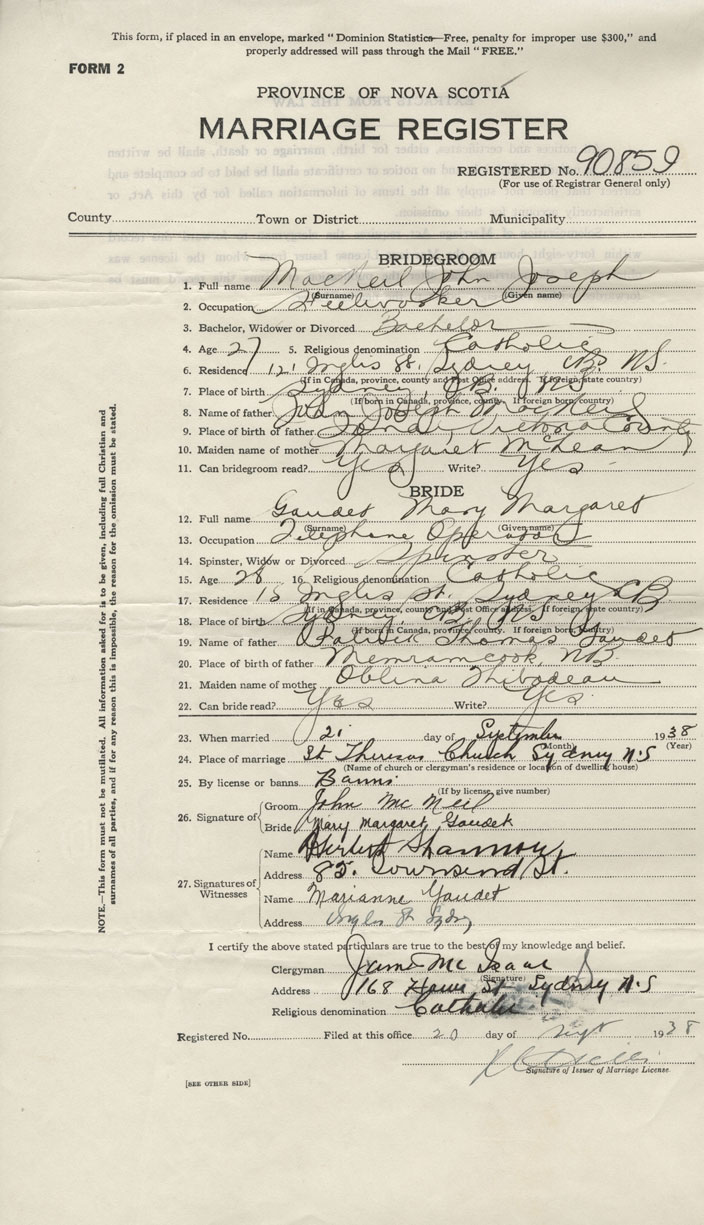 This form, if placed in an envelope, marked "Dominion Statistics—Free, penalty for improper use $300," and
properly addressed will pass through the Mail "FREE."
FORM 2
PROVINCE OF NOVA SCOTIA
MARRIAGE REGISTER
REGISTERED No. 90859
(For use of Registrar General only)
County Town or District Municipality
BRIDEGROOM
1. Full name MacNeil John Joseph
(Surname) (Given name)
2. Occupation Steelworker
3. Bachelor, Widower or Divorced Bachelor
4. Age 27 5. Religious denomination Catholic
6. Residence 121 Inglis St. Sydney CB. NS.
(If in Canada, province, county and Post Office address. If foreign, state country)
7. Place of birth Sydney, CB. NS
(If born in Canada, province, county. If foreign born, country)
8. Name of father John Joseph MacNeil
9. Place of birth of father Iona Victoria County
10. Maiden name of mother Margaret McLean
11. Can bridegroom read? Yes Write? Yes
BRIDE
12. Full name Gaudet Mary Margaret
(Surname) (Given name)
13. Occupation Telephone Operator
14. Spinster, Widow or Divorced Spinster
15. Age 28 16. Religious denomination Catholic
17. Residence 15 Inglis St. Sydney CB
(If in Canada, province, county and Post Office address. If foreign, state country)
18. Place of birth Sydney, CB, NS
(If born in Canada, province, county. If foreign born, country)
19. Name of father Patrick Thomas Gaudet
20. Place of birth of father Memramcook NB.
21. Maiden name of mother Oblina Thibodeau
22. Can bride read? Yes Write? Yes.
23. When married 21 day of September 1938
(Month) (Year)
24. Place of marriage St Theresas Church Sydney N.S
(Name of church or clergyman's residence or location of dwelling house)
25. By license or banns Banns
(If by license, give number)
26. Signature of
Groom John Mc Neil
Bride Mary Margaret Gaudet
27. Signatures of Witnesses
Name Shannon
Address 85. Townsend St.
Name Marianne Gaudet
Address Inglis St Sydney
I certify the above stated particulars are true to the best of my knowledge and belief.
Clergyman Mc Isaac
(Signature)
Address 168 St Sydney N.S
Religious denomination Catholic
Registered No. Filed at this office 20 day of Sept 1938
Signature of Issuer of Marriage License
[SEE OTHER SIDE]
NOTE.—This form must not be mutilated. All information asked for is to be given, including full Christian and
surnames of all parties, and if for any reason this is impossible, the reason for the omission must be stated.